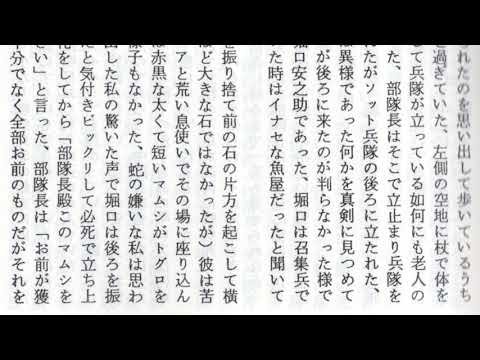 されたのを思い出して歩いているうち
を過ぎていた、左側の空地に杖で体を
て兵隊が立っている如何にも老人の
た、部隊長はそこで立止まり兵隊を
たがソット兵隊の後ろに立たれた、
は異様であった何かを真剣に見つめて
が後ろに来たのが判らなかった様で
堀口安之助であった、堀口は召集兵で
た時はイナセな魚屋だったと聞いて
を振り捨て前の石の片方を起こして横
ほど大きな石ではなかったが）彼は苦
アと荒い息使いでその場に座り込ん
は赤黒な太くて短いマムシがトグロを
様子もなかった、蛇の嫌いな私は思わ
出した私の驚いた声で堀口は後ろを振
たと気付きビックリして必死で立ち上
をしてから「部隊長殿このマムシを
さい」と言った、部隊長は「お前が獲
半分でなく全部お前のものだがそれを